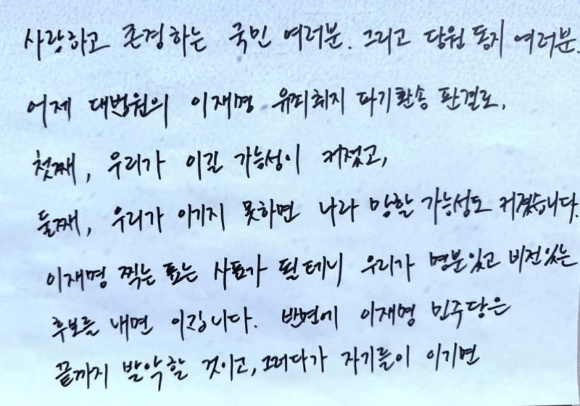 사랑하고 존경하는 국민 여러분. 그리고 당원 동지 여러분.
어제 대법원의 이재명 유죄취지 파기환송 판결로,
첫째, 우리가 이길 가능성이 커졌고,
둘째, 우리가 이기지 못하면 나라 망할 가능성도 커졌습니다.
이재명 찍는 표는 사표가 될테니 우리가 명분있고 비전있는
후보를 내면 이깁니다. 반면에 이재명 민주당은
끝까지 발악할 것이고, 그러다가 자기들이 이기면